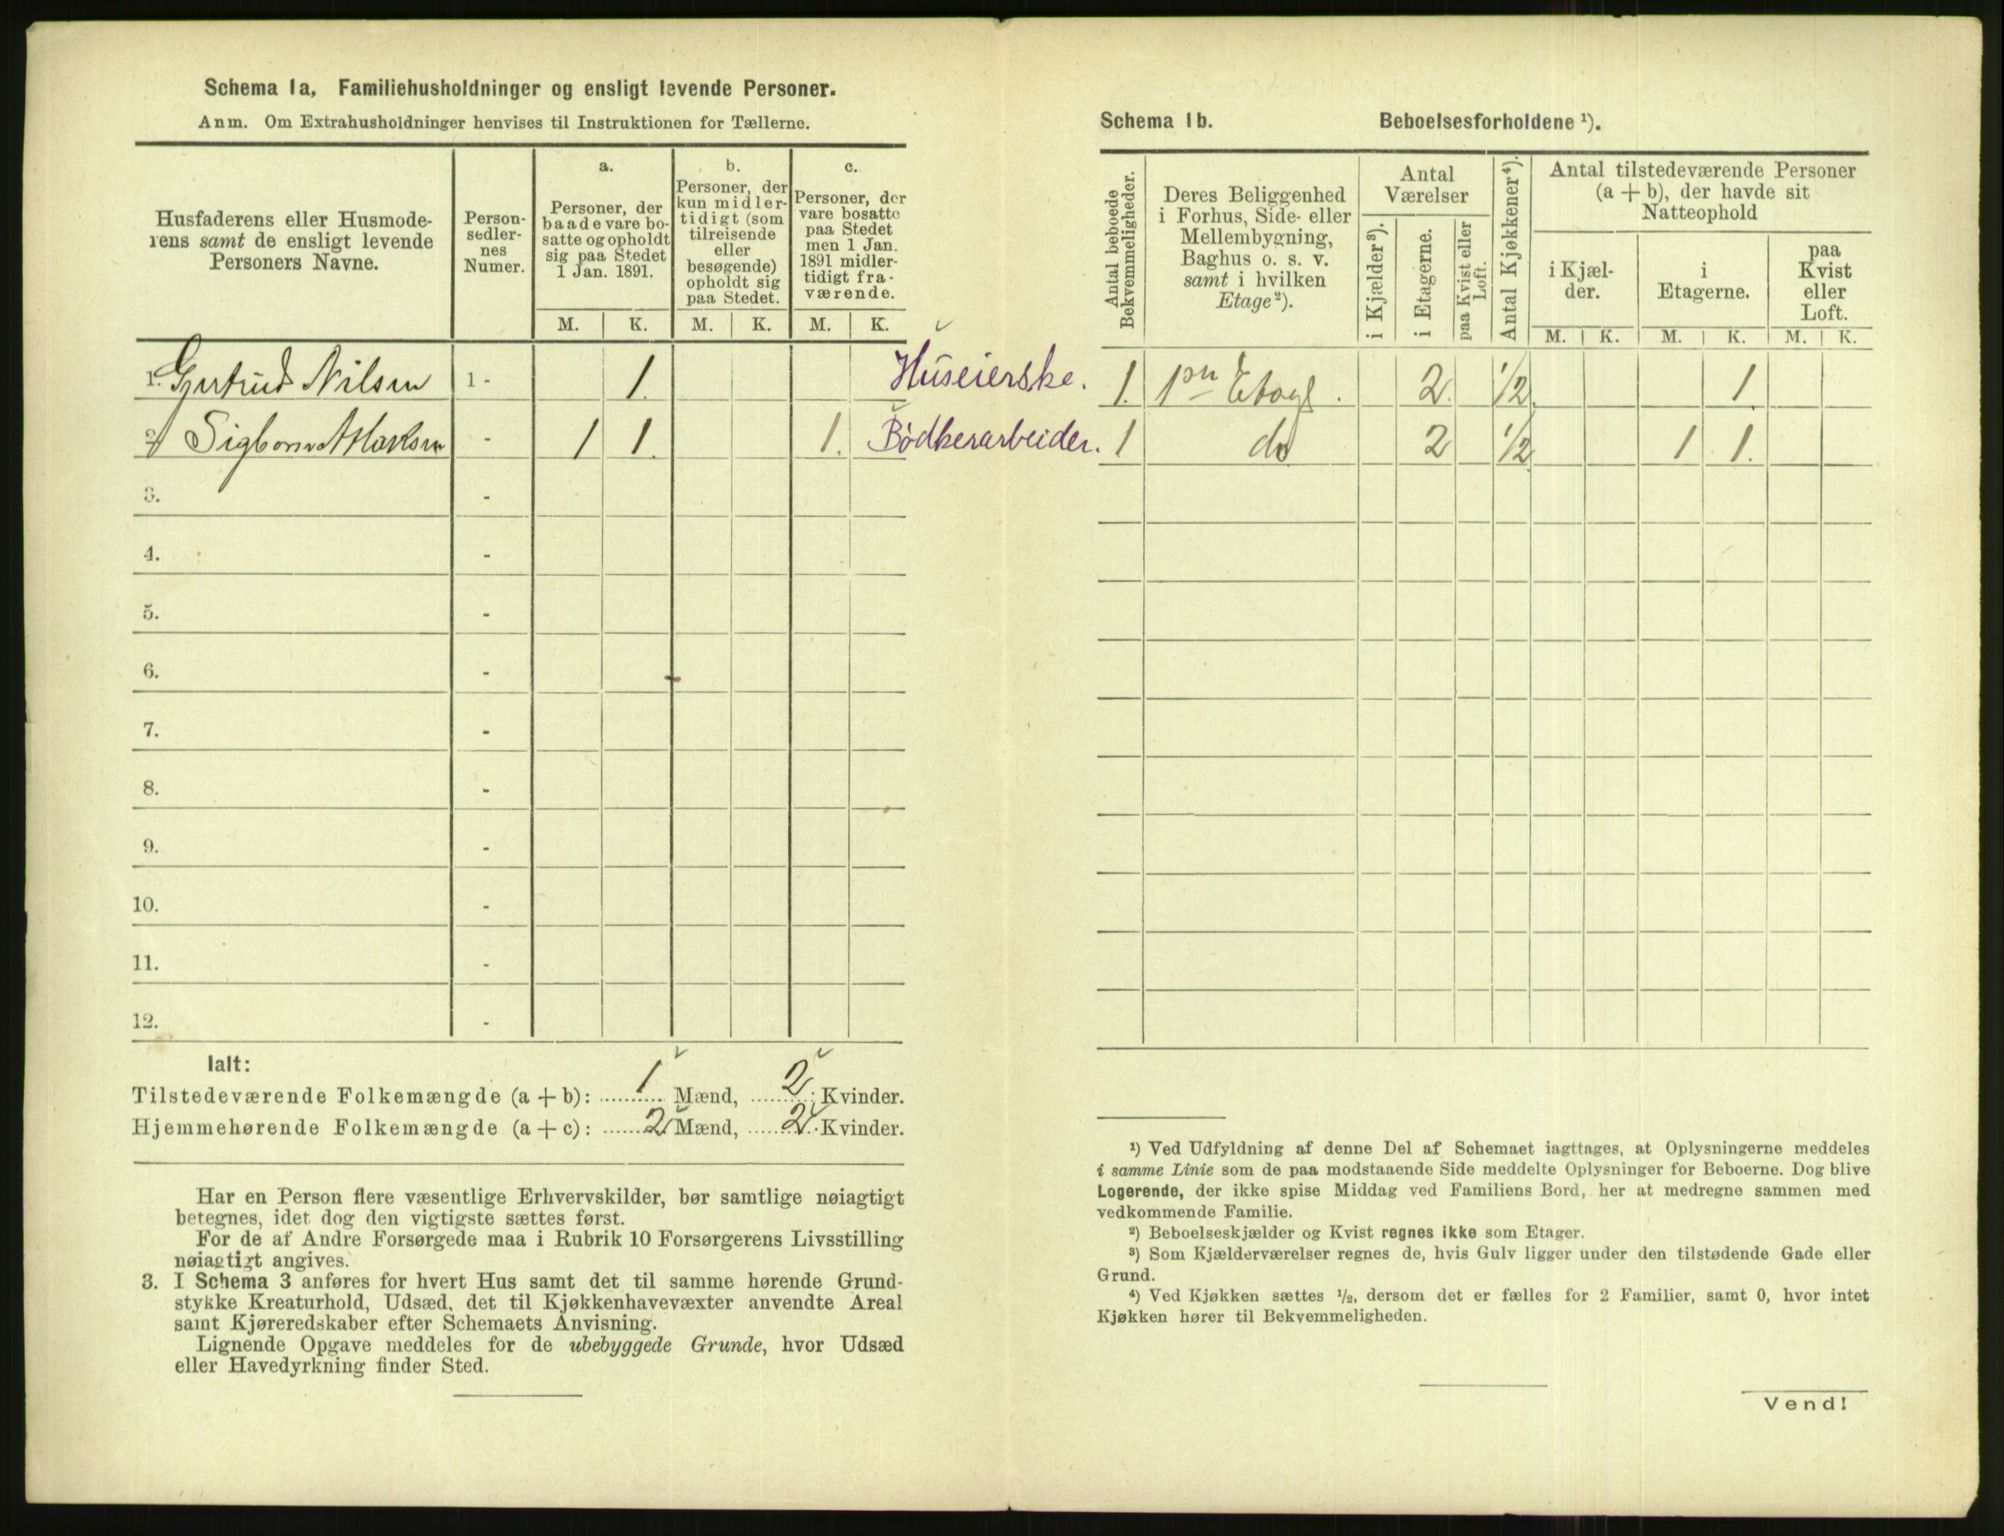 Schema 1a, Familiehusholdninger og ensligt levende Personer.
Anm. Om Extrahusholdninger henvises til Instruktionen for Tællerne.
Husfaderens eller Husmode-
rens samt de ensligt levende
Personers Navne.
Person-
sedler-
nes
Numer.
a.
Personer, der
baade vare bo-
satte og opholdt
sig paa Stedet
1 Jan. 1891.
b.
Personer, der
kun midler-
tidigt (som
tilreisende
eller
besøgende)
opholdt sig
paa Stedet.
c.
Personer, der
vare bosatte
paa Stedet
men 1 Jan.
1891 midler-
tidigt fra-
værende.
M. K. M. K. M. K.
1. Gjertrud Nilsen 1 - 1. Huseierske.
2 Sigborn Aslaksen - 1 1. 1. Bødkerarbeider.
3. -
4. -
5. -
6. -
7. -
8. -
9. -
10. -
11. -
12. -
Ialt:
Tilstedeværende Folkemængde (a + b): 1 Mænd, 2 Kvinder.
Hjemmehørende Folkemængde (a + c): 2 Mænd, 2 Kvinder.
Har en Person flere væsentlige Erhvervskilder, bør samtlige nøiagtigt
betegnes, idet dog den vigtigste sættes først.
For de af Andre Forsørgede maa i Rubrik 10 Forsørgerens Livsstilling
nøiagtigt angives.
3. I Schema 3 anføres for hvert Hus samt det til samme hørende Grund-
stykke Kreaturhold, Udsæd, det til Kjøkkenhavevæxter anvendte Areal
samt Kjøreredskaber efter Schemaets Anvisning.
Lignende Opgave meddeles for de ubebyggede Grunde, hvor Udsæd
eller Havedyrkning finder Sted.
Schema 1b. Beboelsesforholdene ¹).
Antal beboede
Bekvemmeligheder.
Deres Beliggenhed
i Forhus, Side- eller
Mellembygning,
Baghus o. s. v.
samt i hvilken
Etage²).
Antal
Værelser
i Kjælder³).
i Etagerne.
paa Kvist eller
Loft.
Antal Kjøkkener⁴).
Antal tilstedeværende Personer
(a + b), der havde sit
Natteophold
i Kjæl-
der.
i
Etagerne.
paa
Kvist
eller
Loft.
M. K. M. K. M. K.
1. 1ste Etage. 2. 1/2 1.
1 do 2 1/2 1 1.
¹) Ved Udfyldning af denne Del af Schemaet iagttages, at Oplysningerne meddeles
i samme Linie som de paa modstaaende Side meddelte Oplysninger for Beboerne. Dog blive
Logerende, der ikke spise Middag ved Familiens Bord, her at medregne sammen med
vedkommende Familie.
²) Beboelseskjælder og Kvist regnes ikke som Etager.
³) Som Kjælderværelser regnes de, hvis Gulv ligger under den tilstødende Gade eller
Grund.
⁴) Ved Kjøkken sættes ½, dersom det er fælles for 2 Familier, samt 0, hvor intet
Kjøkken hører til Bekvemmeligheden.
Vend!